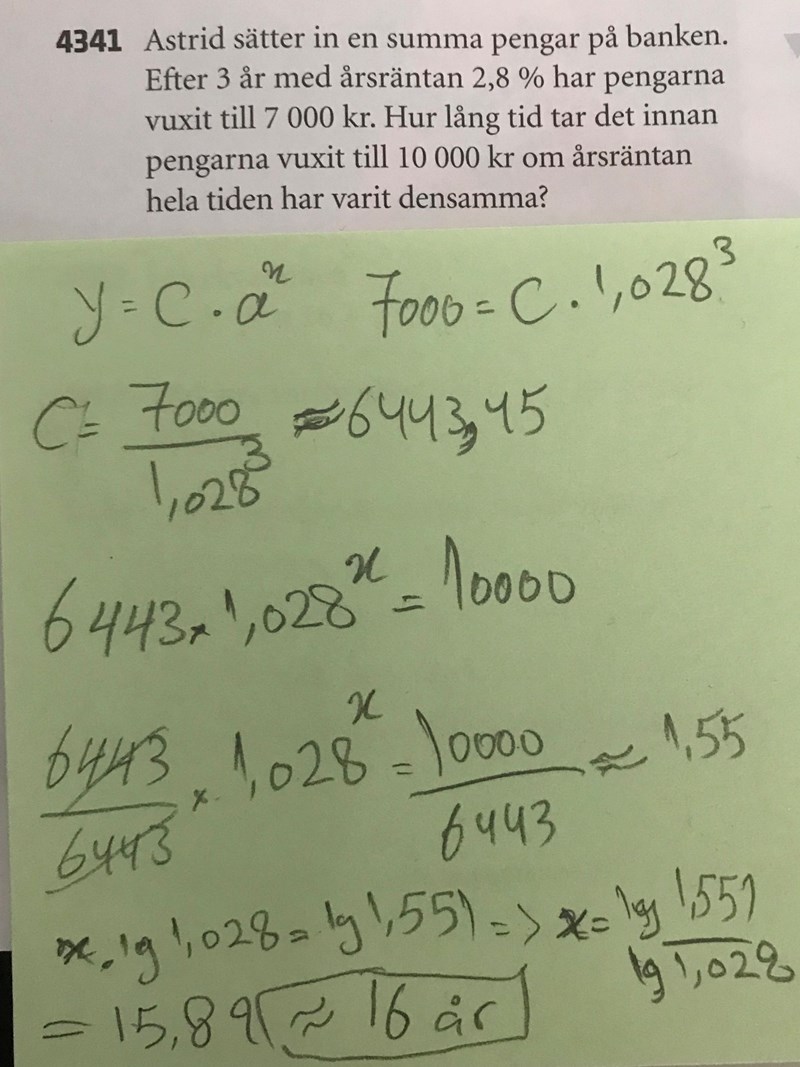 4341 Astrid sätter in en summa pengar på banken.
Efter 3 år med årsräntan 2,8 % har pengarna
vuxit till 7 000 kr. Hur lång tid tar det innan
pengarna vuxit till 10 000 kr om årsräntan
hela tiden har varit densamma?
y = C · a^x 7000 = C · 1,028^3
C = 7000 / 1,028^3 ≈ 6443,45
6443 × 1,028^x = 10000
6443 / 6443 × 1,028^x = 10000 / 6443 ≈ 1,55
x · lg 1,028 = lg 1,551 => x = lg 1,551 / lg 1,028
= 15,89 ≈ 16 år